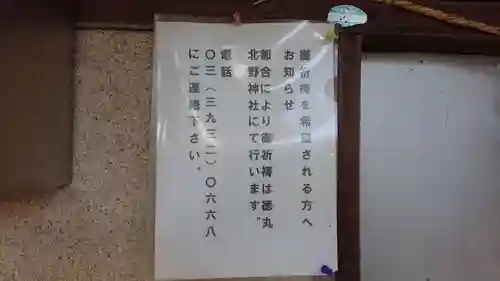 御祈祷を希望される方へ
お知らせ
都合により御祈祷は徳丸
北野神社にて行います。
電話
〇三(三九三二)〇六六八
にご連絡下さい。